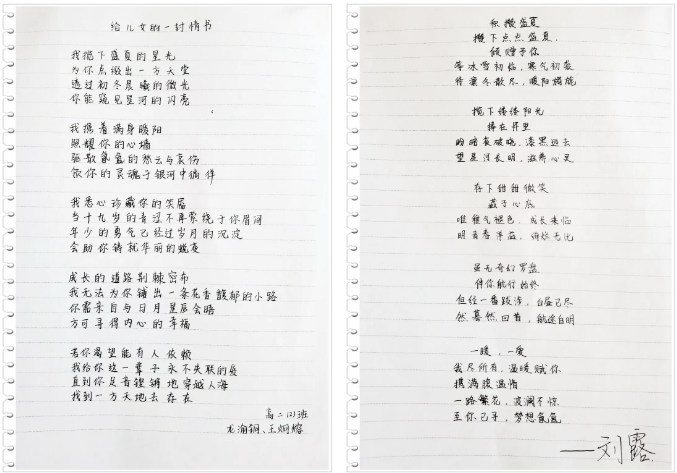 给儿女的一封情书
我揽下盛夏的星光
为你点缀出一方天堂
透过初冬晨曦的微光
你能窥见星河的闪亮
我携着满身暖阳
照耀你的心墙
驱散氤氲的愁云与哀伤
依你的灵魂于银河中徜徉
我悉心珍藏你的笑靥
当十九岁的青涩不再萦绕于你眉间
年少的勇气已经过岁月的沉淀
会助你铸就华丽的蜕变
成长的道路荆棘密布
我无法为你铺出一条花香馥郁的小路
你需亲自与日月星辰会晤
方可寻得内心的幸福
若你渴望能有人依赖
我给你这一辈子永不失联的爱
直到你足音铿锵地穿越人海
找到一方天地去存在
高二(2)班
龙渝铜、王炯榕
积攒盛夏
攒下点点盛夏,
馈赠予你
等冰雪初临,寒气初袭
待凛冬散尽,暖阳旖旎
揽下缕缕阳光
捧在怀里
盼暗夜破晓,漆黑逝去
望星河长明,滋养心灵
存下甜甜微笑
藏于心底
唯稚气褪色,成长来临
明青春洋溢,
虽无奇幻罗盘
伴你能行始终
但任一番跋涉,白昼已尽
然蓦然回首,前途自明
一暖,一爱
我尽所有,温暖赋你
携满腹温情
一路繁花,波澜不惊
至你已手,梦想氤氲
——刘露